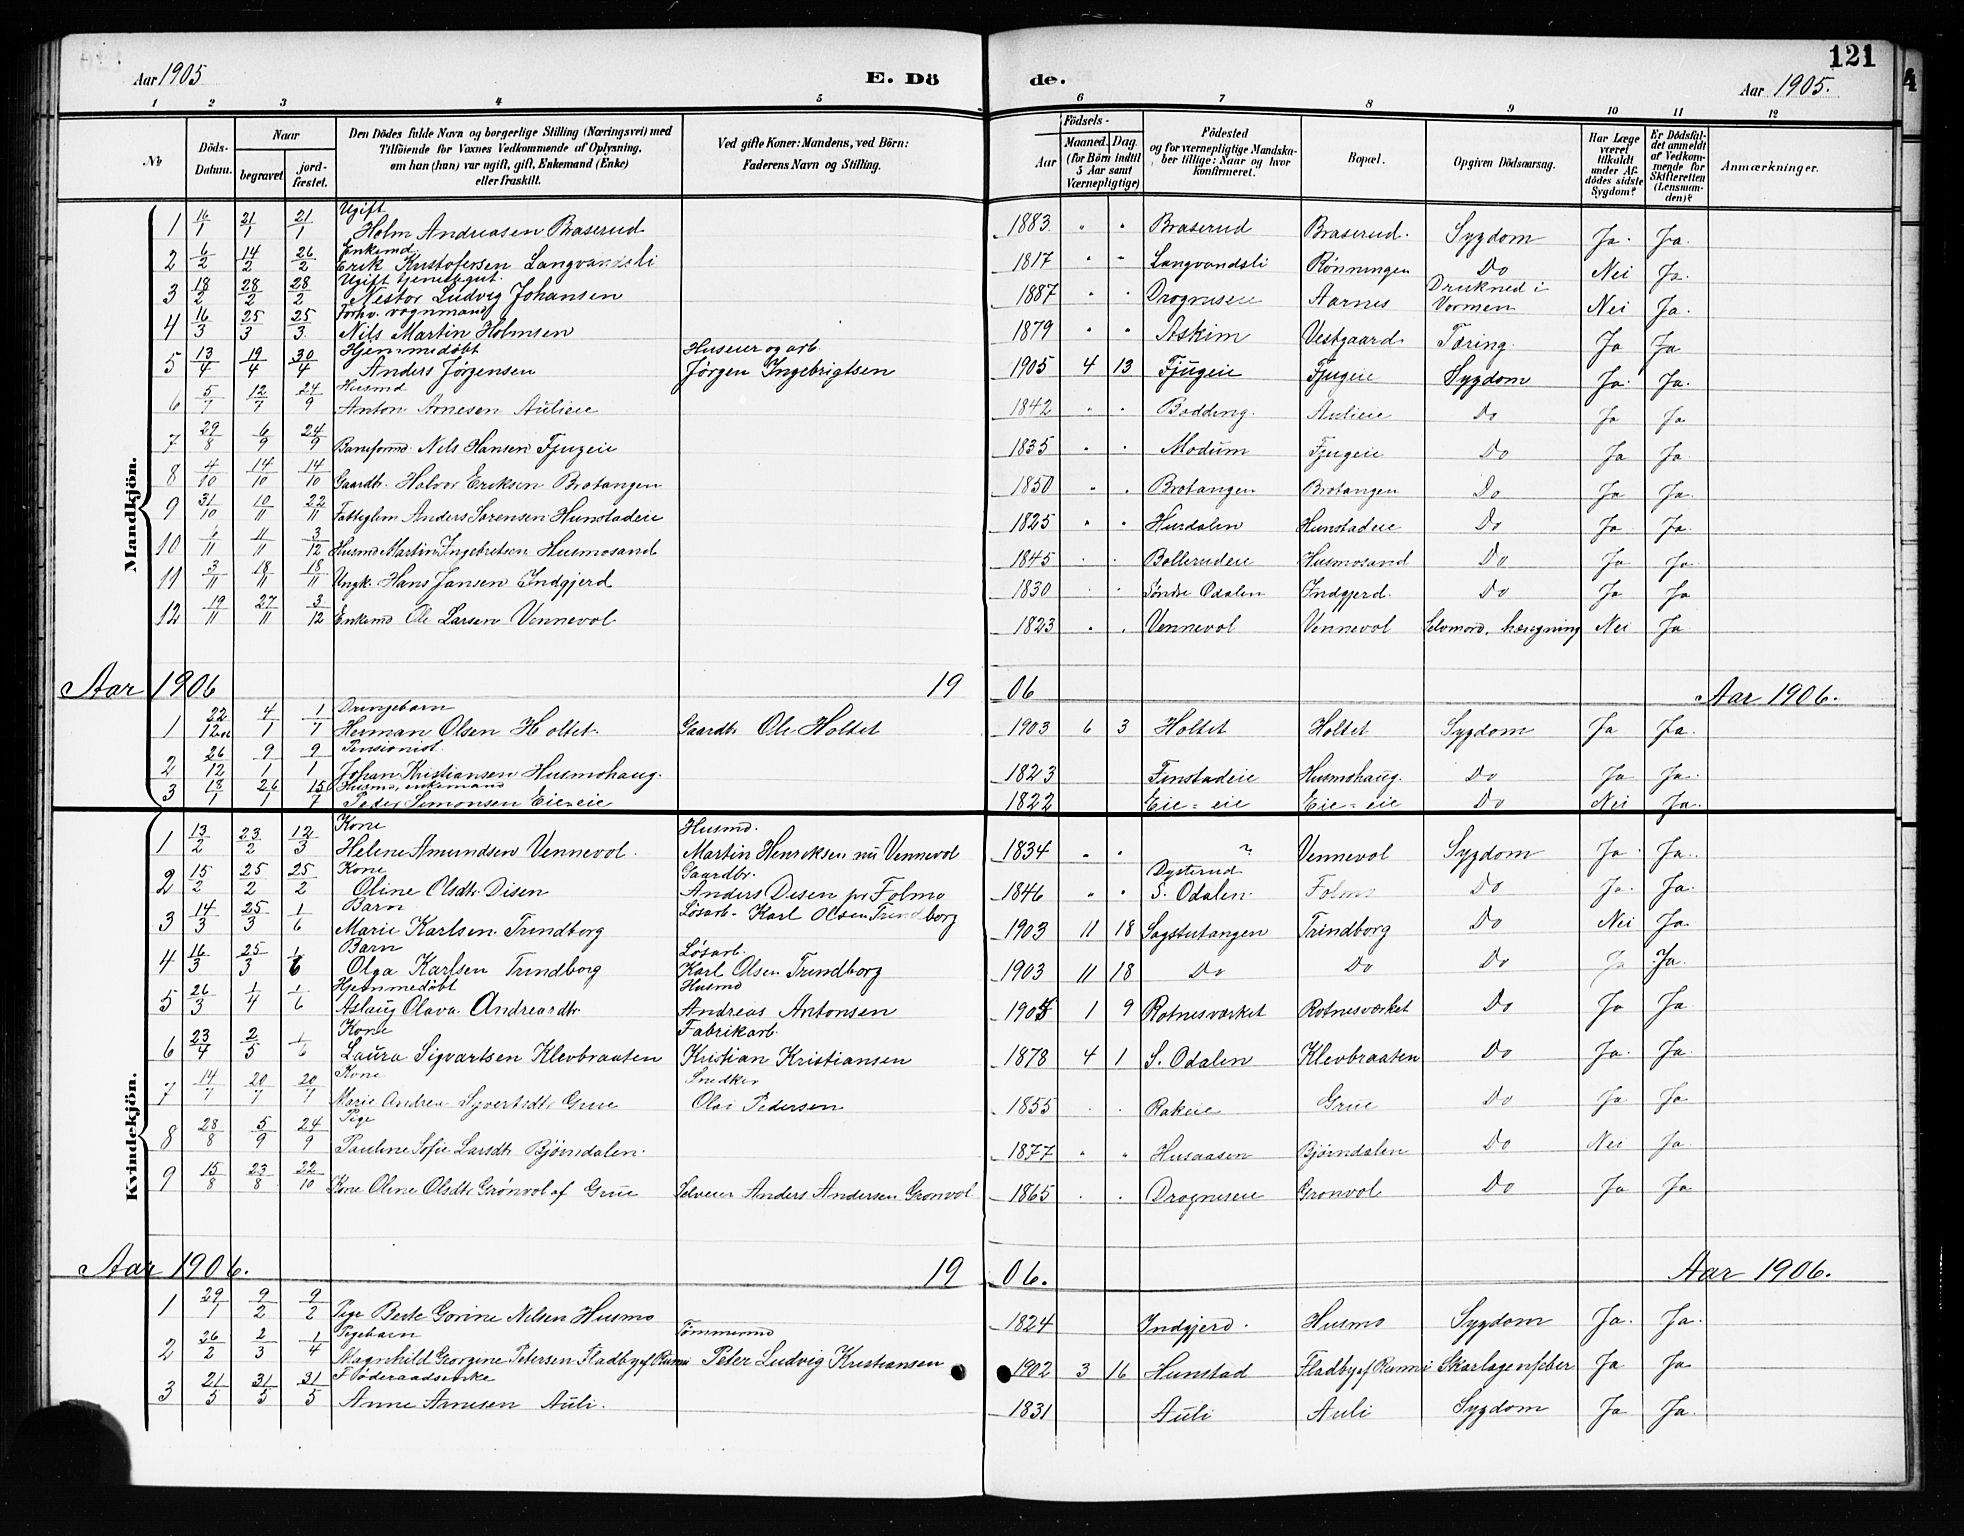 121
Aar 1905
E. Dö
de.
Aar 1905.
1 2 3 4 5 6 7 8 9 10 11 12
No
Döds-Datum.
Naar
begravet
jord-fæstet.
Den Dödes fulde Navn og borgerlige Stilling (Næringsvei) med
Tilföiende for Voxnes Vedkommende af Oplysning,
om han (hun) var ugift, gift, Enkemand (Enke)
eller fraskilt.
Ved gifte Koner: Mandens, ved Börn:
Faderens Navn og Stilling.
Födsels-
Aar
Maaned. Dag.
(for Börn indtil 5 Aar samt Værnepligtige)
Födested
og for værnepligtige Mandskaber tillige: Naar og hvor konfirmeret.
Bopæl.
Opgiven Dödsaarsag.
Har Læge været tilkaldt under Afdödes sidste Sygdom?
Er Dödsfaldet anmeldt af Vedkommende for Skifteretten (Lensmanden)?
Anmærkninger.
Mandkjön.
1 16/1 21/1 21/1 Ugift Holm Andreasen Braserud 1883 " " Braserud Braserud. Sygdom Ja. Ja.
2 6/2 14/2 26/2 Enkemd. Erik Kristofersen Langvandsli 1817 " " Langvandsli Rønningen Do Nei Ja.
3 18/2 28/2 28/2 Ugift tjenestgut. Nestor Ludvig Johansen 1887 " " Drogniseie Aarnes Drukned i Vormen Nei Ja.
4 16/3 25/3 25/3 Forhv. vognmand Nils Martin Holmsen 1879 " " Askim Vestgaard Tæring. Ja Ja
5 13/4 19/4 30/4 Hjemmedøbt Anders Jørgensen Huseier og arb. Jørgen Ingebrigtsen 1905 4 13 Fjugeie Fjugeie Sygdom Ja. Ja.
6 5/7 12/7 24/9 Husmd Anton Arnesen Aulieie 1842 " " Bodding. Aulieie Do Ja Ja
7 29/8 6/9 24/9 Baneformd. Nils Hansen Fjugeie 1835 " " Modum Fjugeie Do Ja Ja
8 4/10 14/10 14/10 Gaardbr. Halvor Eriksen Brotangen 1850 " " Brotangen Brotangen Do Ja Ja.
9 31/10 10/11 22/11 Fattiglem Anders Sørensen Hunstadeie 1825 " " Hurdalen Hunstadeie Do Ja Ja.
10 6/11 11/11 3/12 Husmd Martin Ingebretsen Husmosand 1845 Bollerudeie Husmosand Do Ja Ja.
11 3/11 18/11 18/11 Ungk. Hans Jansen Indgjerd 1830 Søndre Odalen Indgjerd. Do Ja Ja
12 19/11 27/11 3/12 Enkemd Ole Larsen Vennevol 1823 " " Vennevol Vennevol Selvmord, hængning Nei Ja
Aar 1906 1906 Aar 1906.
1 22/12 4/1 1/7 Drengebarn Herman Olsen Holtet. Gaardbr Ole Holtet 1903 6 3 Holtet Holtet Sygdom Ja Ja.
2 26/12 9/1 9/1 Pensionist. Johan Kristiansen Husmohaug. 1823 Finstadeie Husmohaug. Do Ja Ja.
3 18/1 26/1 15/7 Husmd, enkemand Peder Simonsen Eie=eie 1822 Eie=eie Eie=eie Do Nei Ja.
Kvindekjön.
1 13/2 23/2 12/3 Kone Helene Amundsen Vennevol. Husmd. Martin Henriksen nu Vennevol 1834 " " ? Vennevol Sygdom Ja Ja.
2 15/2 25/2 25/2 Kone Oline Olsdtr. Disen Gaardbr. Anders Disen pr Folmo 1846 " " Dysterud S. Odalen. Folmo Do Ja. Ja.
3 14/3 25/3 1/6 Barn Marie Karlsen Trindborg Løsarb. Karl Olsen Trindborg 1903 11 18 Sagstutangen Trindborg Do Nei Ja.
4 16/3 25/3 1/6 Barn Olga Karlsen Trindborg Løsarb. Karl Olsen Trindborg 1903 11 18 Do Do Do Ja Ja.
5 26/3 1/4 1/6 Hjemmedøbt Aslaug Olava Andreasdtr. Husmd Andreas Antonsen 1905 1 9 Rotnesværket Rotnesværket Do Ja Ja.
6 23/4 2/5 1/6 Kone Laura Sigvartsen Klevbraaten Fabrikarb. Kristian Kristiansen 1878 4 1 S. Odalen Klevbraaten Do Ja. Ja.
7 14/7 20/7 20/7 Kone Marie Andrea Syvertsdtr Grue Snedker Olai Pedersen 1855 Rakeie Grue Do Ja Ja.
8 28/8 5/9 24/9 Pige Pauline Sofie Larsdtr Bjørndalen. 1877 " " Husaasen Bjørndalen Do Nei Ja.
9 15/8 23/8 22/10 Kone Oline Olsdtr Grønvol af Grue Selveier Anders Andersen Grønvol 1865 Drogniseie Grønvol Do Ja Ja.
Aar 1906. 1906. Aar 1906.
1 29/1 9/2 9/2 Pige Berte Gorine Nilsen Husmo 1824 Indgjerd. Husmo Sygdom Ja. Ja.
2 26/2 2/3 1/4 Pigebarn Magnhild Georgine Petersen Fladby af Rumi Tømmermd Peter Ludvig Kristiansen 1902 3 16 Hunstad Fladby af Rumi Skarlagensfeber Ja Ja
3 21/5 31/5 31/5 Føderaadsenke Anne Arnesen Auli. 1831 Auli Auli Sygdom Ja Ja.